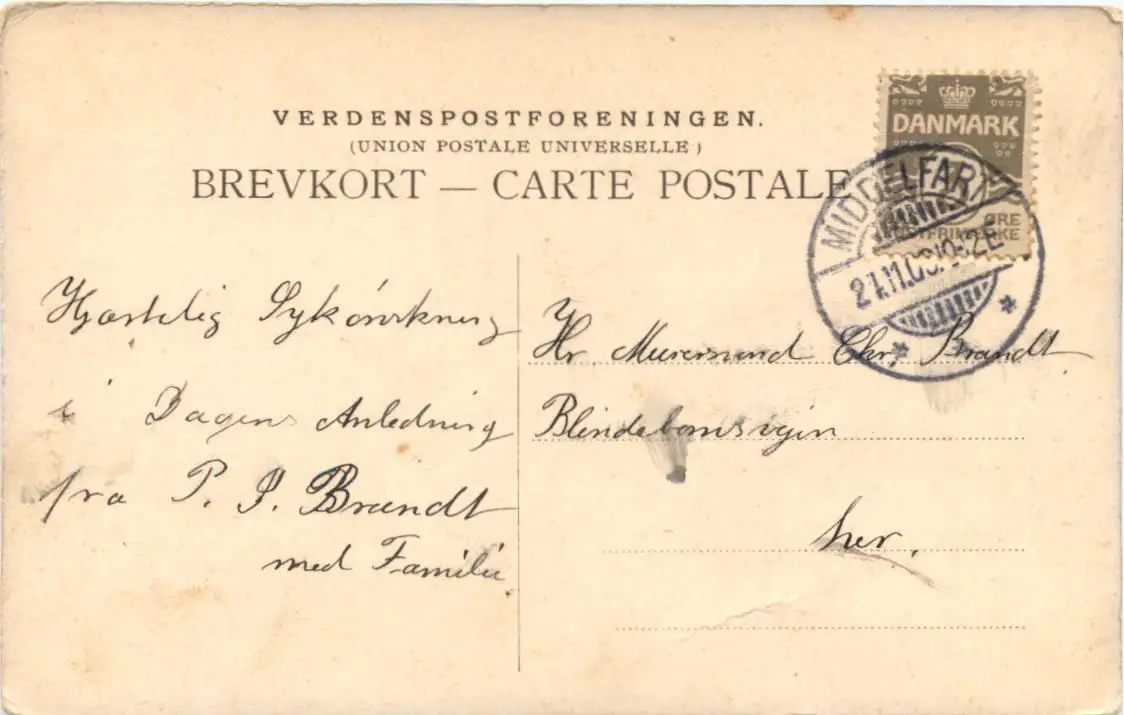 VERDENSPOSTFORENINGEN.
(UNION POSTALE UNIVERSELLE)
BREVKORT — CARTE POSTALE
DANMARK
ØRE
POSTFRIMÆRKE
MIDDELFART
Hjærtelig Lykønskning
i Dagens Anledning
fra P. J. Brandt
med Familie
Hr. Murermand Chr. Brandt
Blindebomsvejen
her.